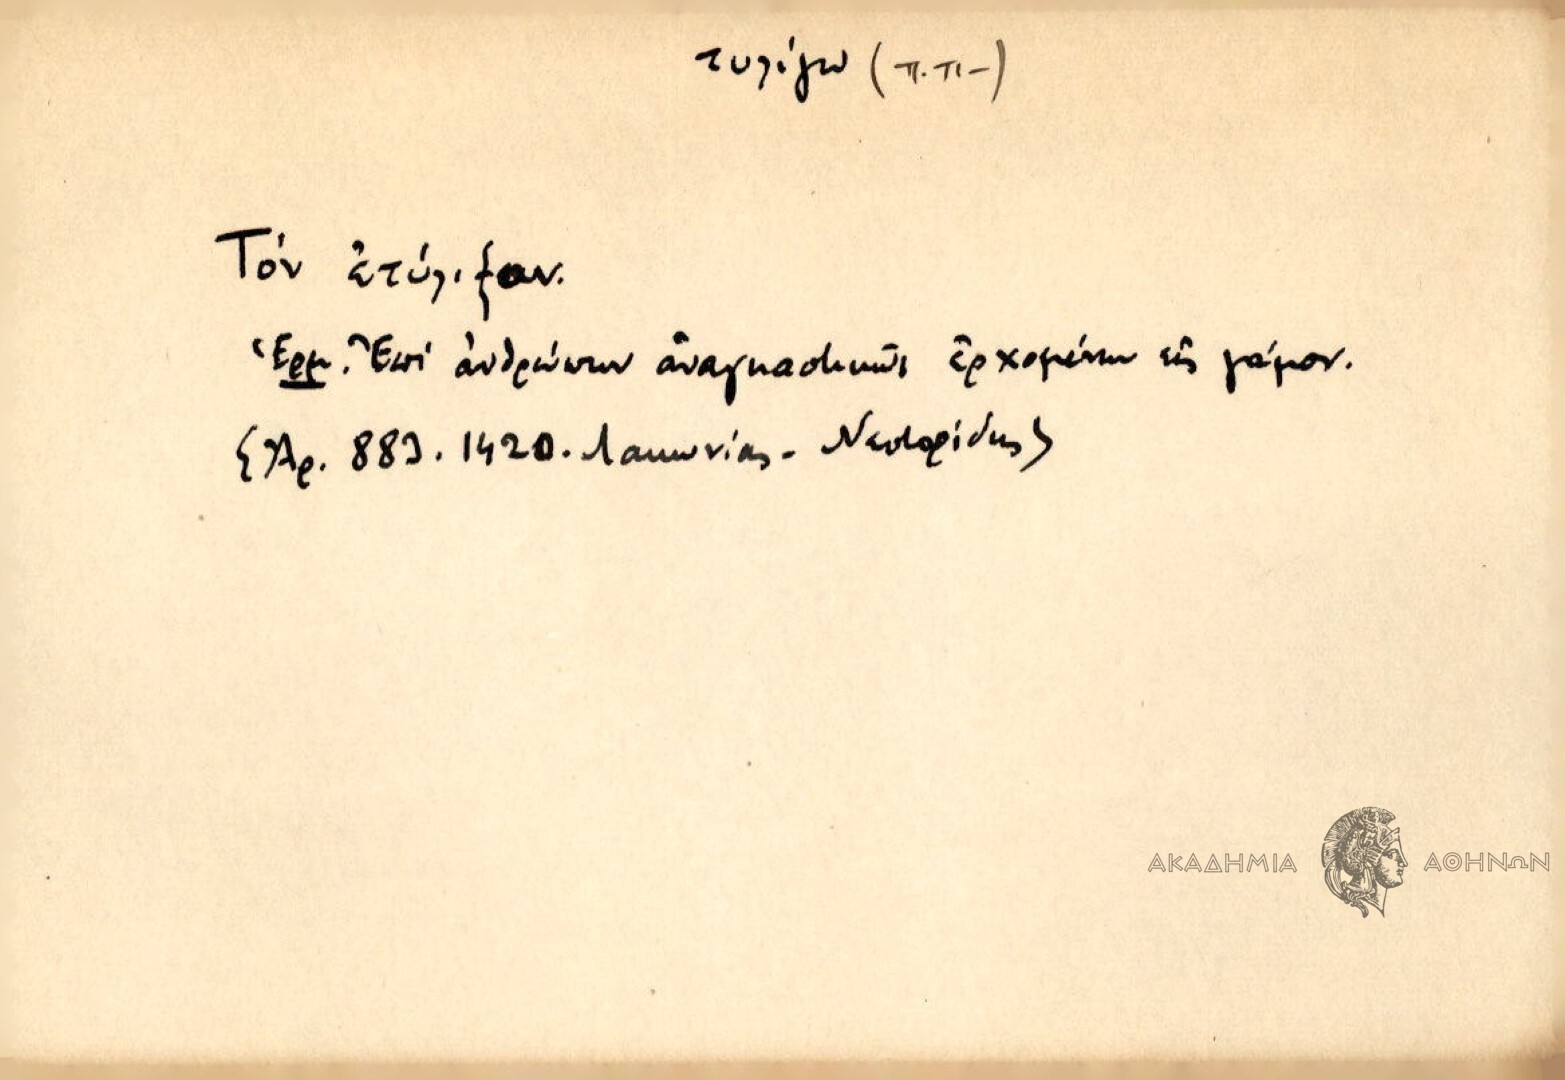 τυλίγω (π.πι-)
Τόν ἐτύλιξαν.
Ἑρμ. Ἐπί ἀνθρώπων ἀναγκαστικῶς ἐρχομένων εἰς γάμον.
{Ἀρ. 883. 1420. Λακωνίας - Νεστορίδης}
ΑΚΑΔΗΜΙΑ ΑΘΗΝΩΝ